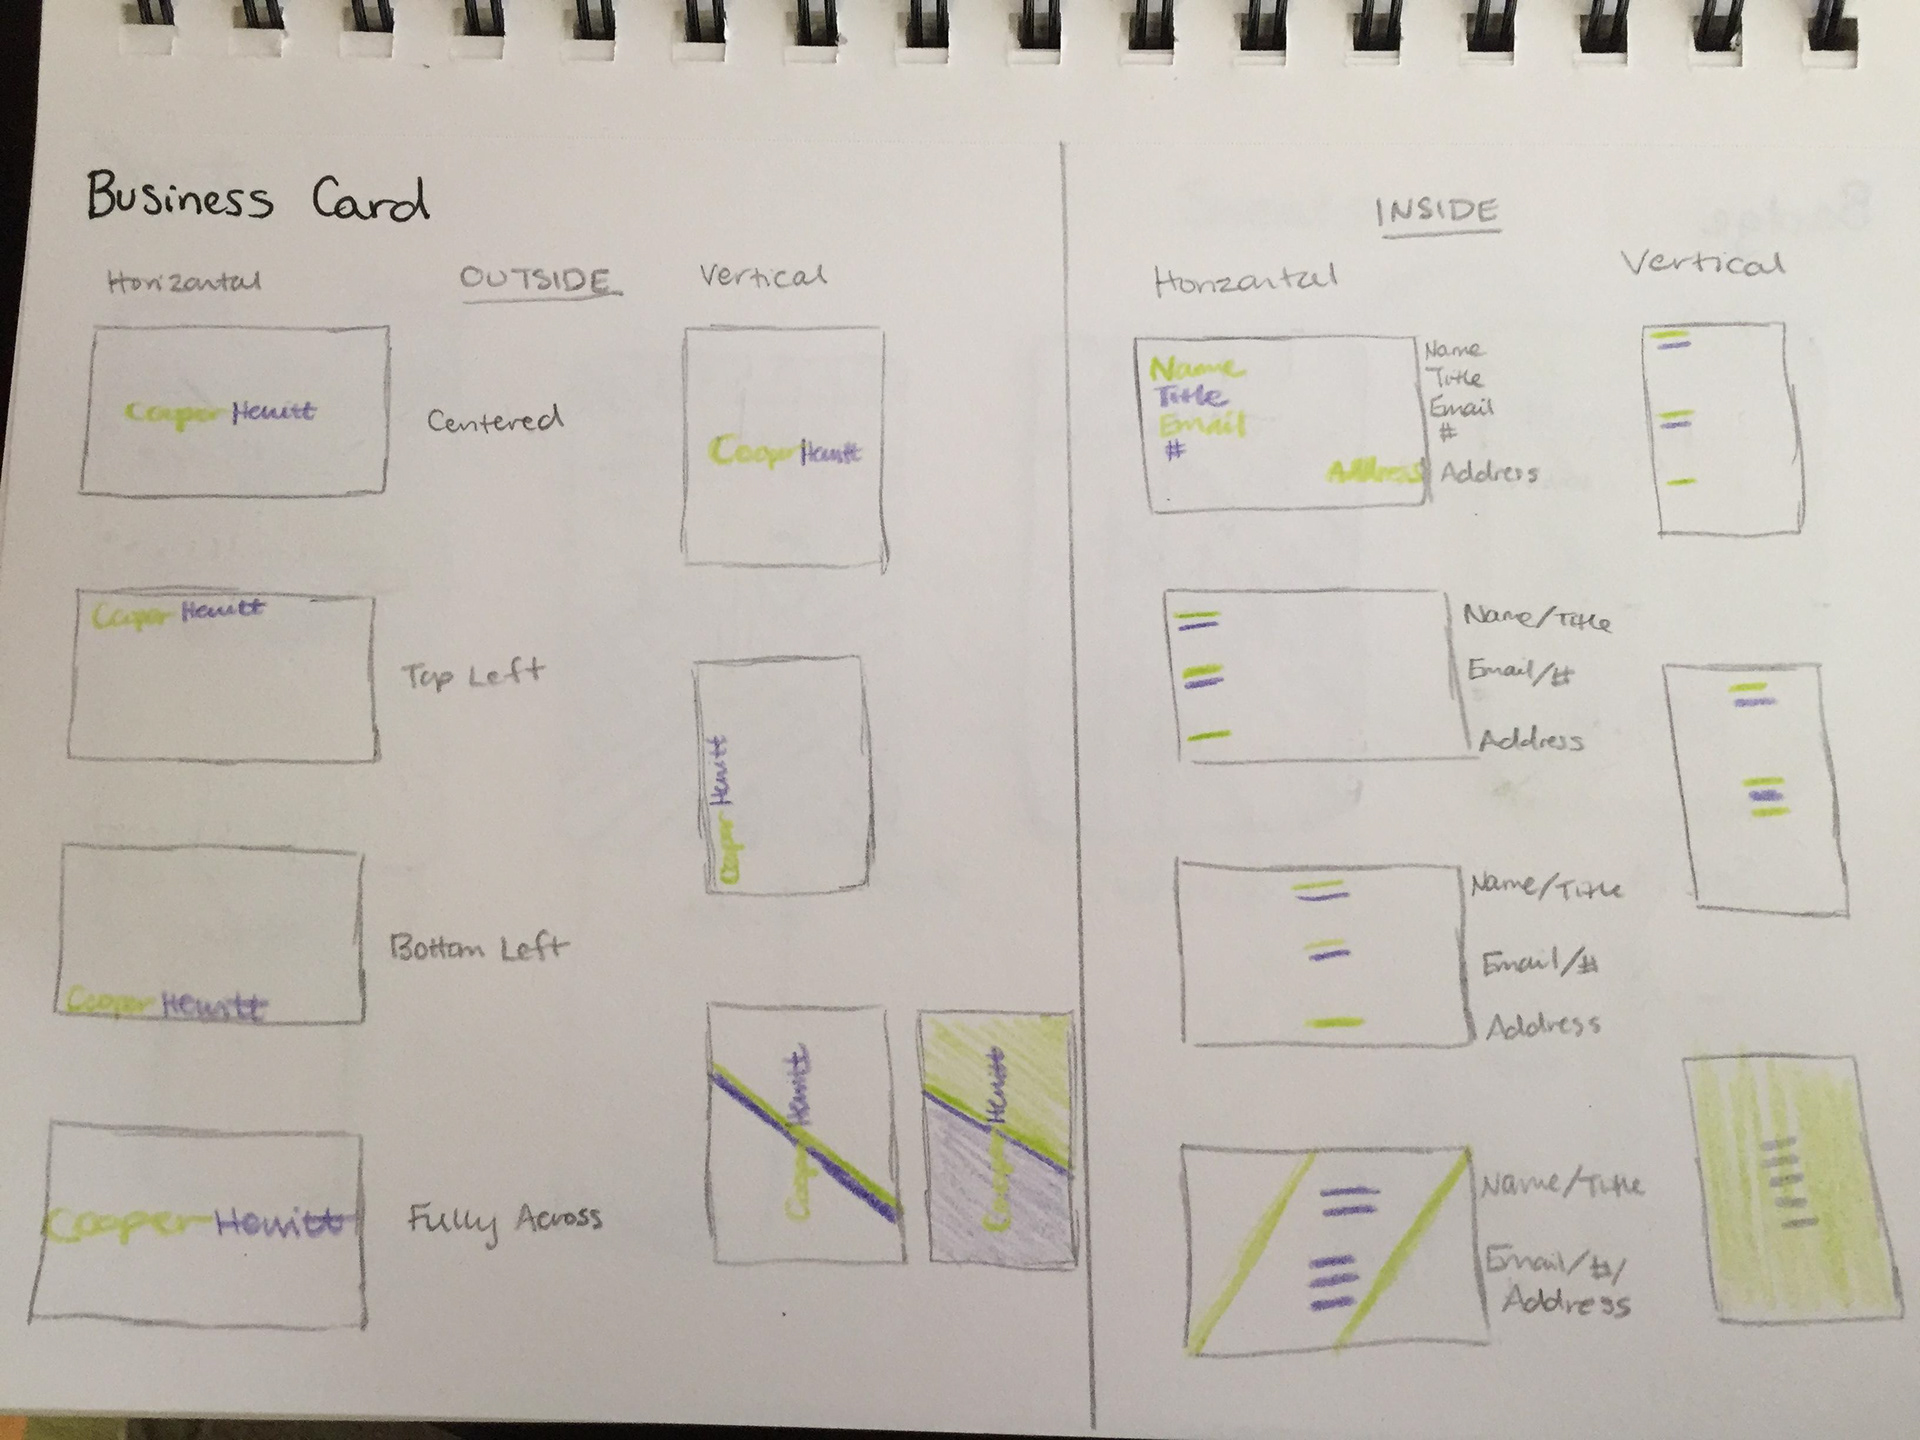 Business Card
Horizontal
OUTSIDE
Vertical
CooperHewitt
Centered
CooperHewitt
CooperHewitt
Top Left
CooperHewitt
CooperHewitt
Bottom Left
CooperHewitt
Fully Across
CooperHewitt
CooperHewitt
INSIDE
Horizontal
Vertical
Name
Title
Email
#
Address
Name
Title
Email
#
Address
Name/Title
Email/#
Address
Name/Title
Email/#
Address
Name/Title
Email/#/
Address